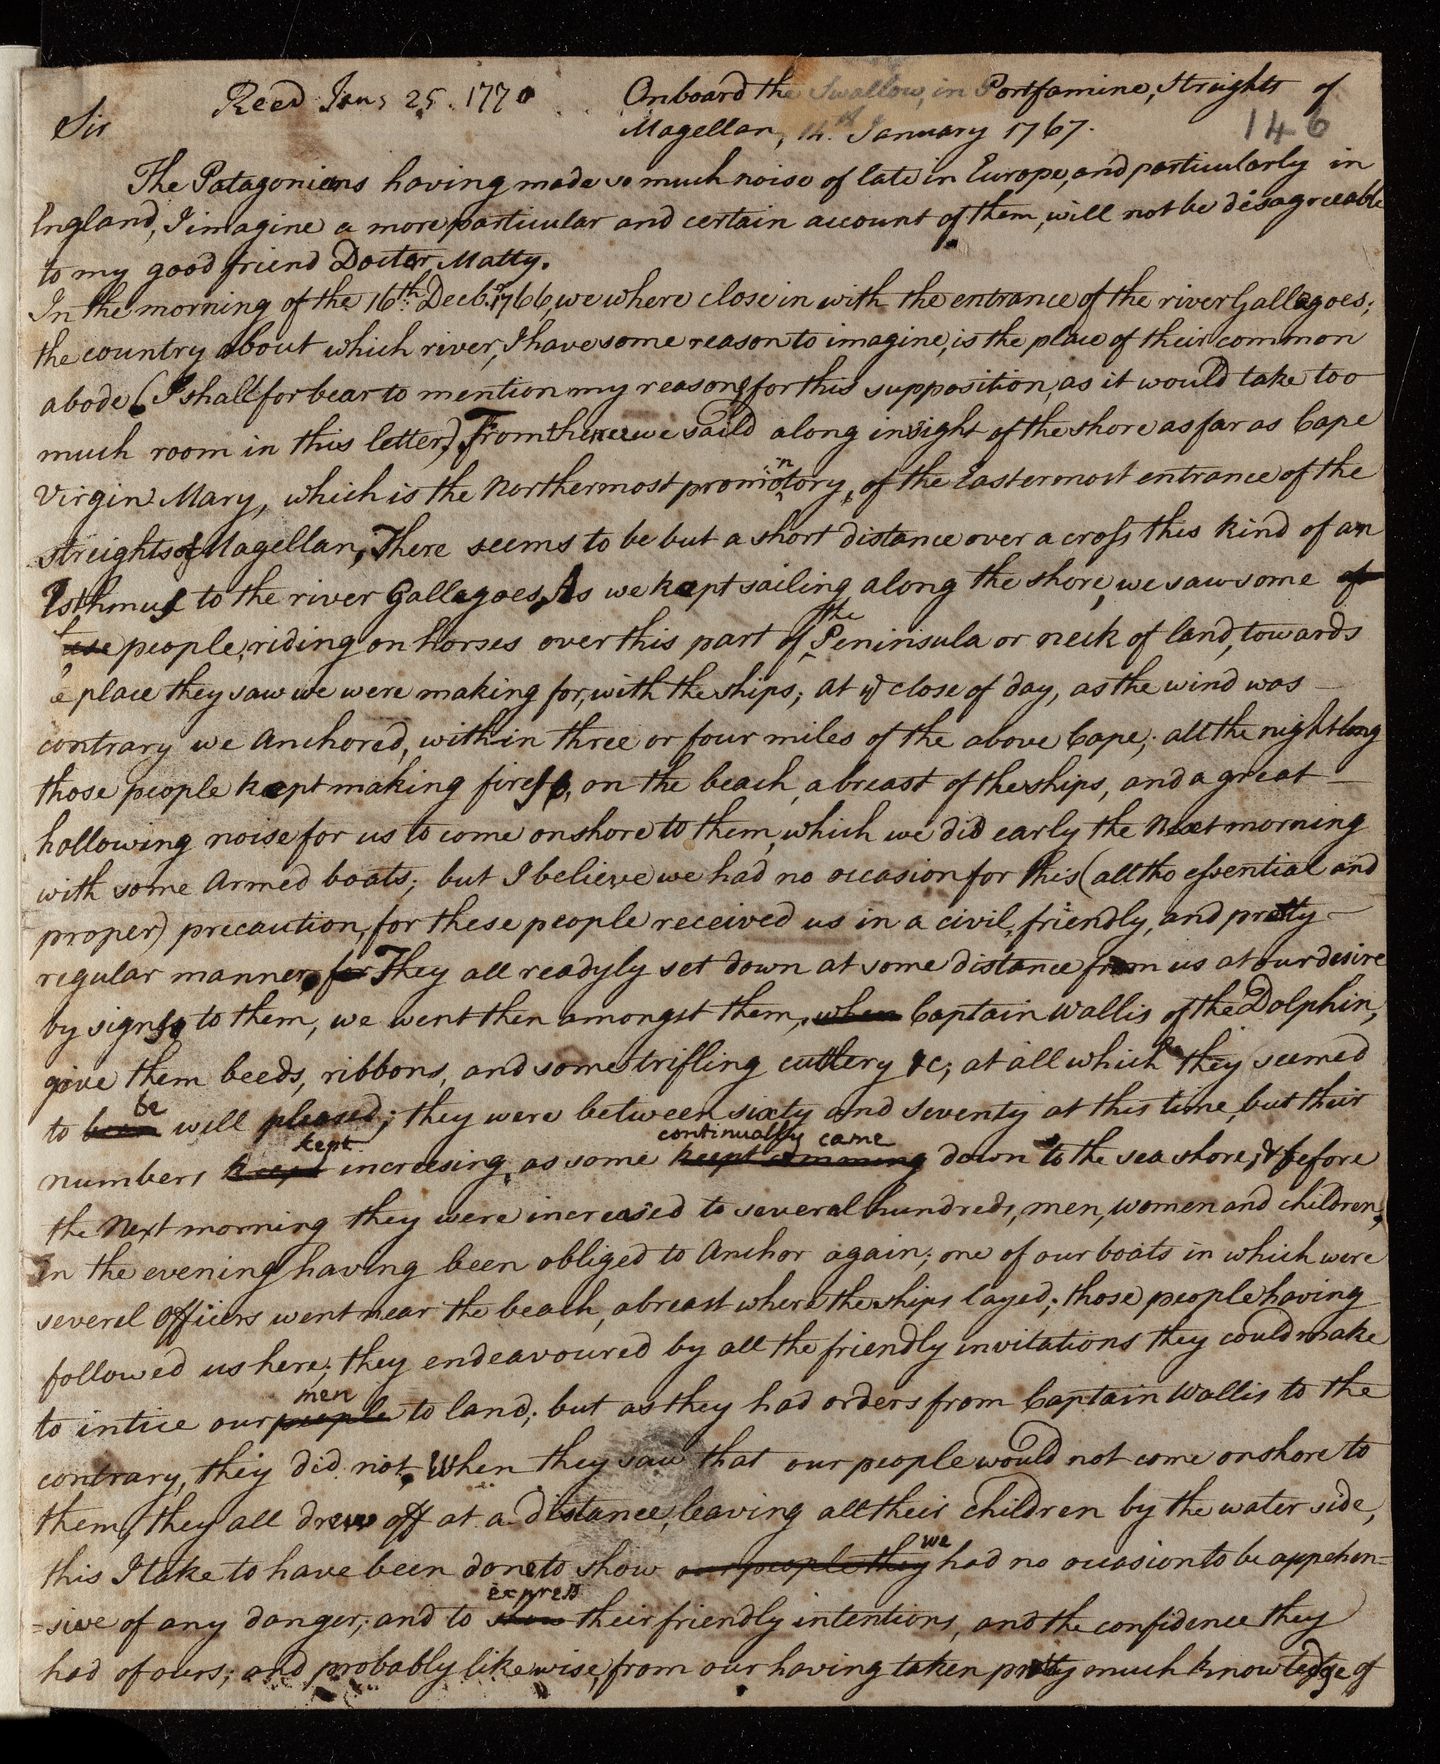 Recd Jan; 25. 1770
Onboard the Swallow, in Portfamine, Streights of
Sir
Magellan, 14th January 1767.
146
The Patagonians having made so much noise of late in Europe, and particularly in
England, I imagine a more particular and certain account of them, will not be disagreeable
to my good friend Doctor Matty.
In the morning of the 16th Decbr 1766, we where close in with the entrance of the river Gallegoes;
the country about which river, I have some reason to imagine, is the place of their common
abode (I shall forbear to mention my reasons for this supposition, as it would take too
much room in this letter). From thence we saild along in sight of the shore as far as Cape
Virgin Mary, which is the Northermost promontory, of the Eastermost entrance of the
streights of Magellan, There seems to be but a short distance over a cross this kind of an
Isthmus to the river Gallegoes, As we kept sailing along the shore, we saw some of
these people, riding on horses over this part of the Peninsula or neck of land, towards
e place they saw we were making for, with the ships; at ye close of day, as the wind was
contrary we Anchored, within three or four miles of the above Cape; all the night long
those people kept making fires, on the beach, abreast of the ships, and a great
hallowing noise for us to come onshore to them, which we did early the Next morning
with some Armed boats; but I believe we had no occasion for this (alltho essential and
proper) precaution, for these people received us in a civil, friendly, and pretty
regular manner, for They all readyly set down at some distance from us at our desire
by signs to them, we went then amongst them, when Captain Wallis of the Dolphin,
give them beeds, ribbons, and some trifling cuttlery &c; at all which they seemed
to been be well pleased; they were between sixty and seventy at this time, but their
numbers keept kept increesing, as some keept comming continually came down to the sea shore; & before
the Next morning they were increased to several hundreds, men, women and children,
In the evening having been obliged to Anchor again; one of our boats in which were
several Officers went near the beach, abreast where the ships layed; those people having
followed us here; they endeavoured by all the friendly invitations they could make
to intice our people men to land; but as they had orders from Captain Wallis to the
contrary, they did not, When they saw that our people would not come onshore to
them, they all drew off at a distance, leaving all their children by the water side,
this I take to have been done to show our people they we had no occasion to be appehen=
=sive of any danger; and to show express their friendly intentions, and the confidence they
had of ours; and probably likewise, from our having taken pretty much knowledge of